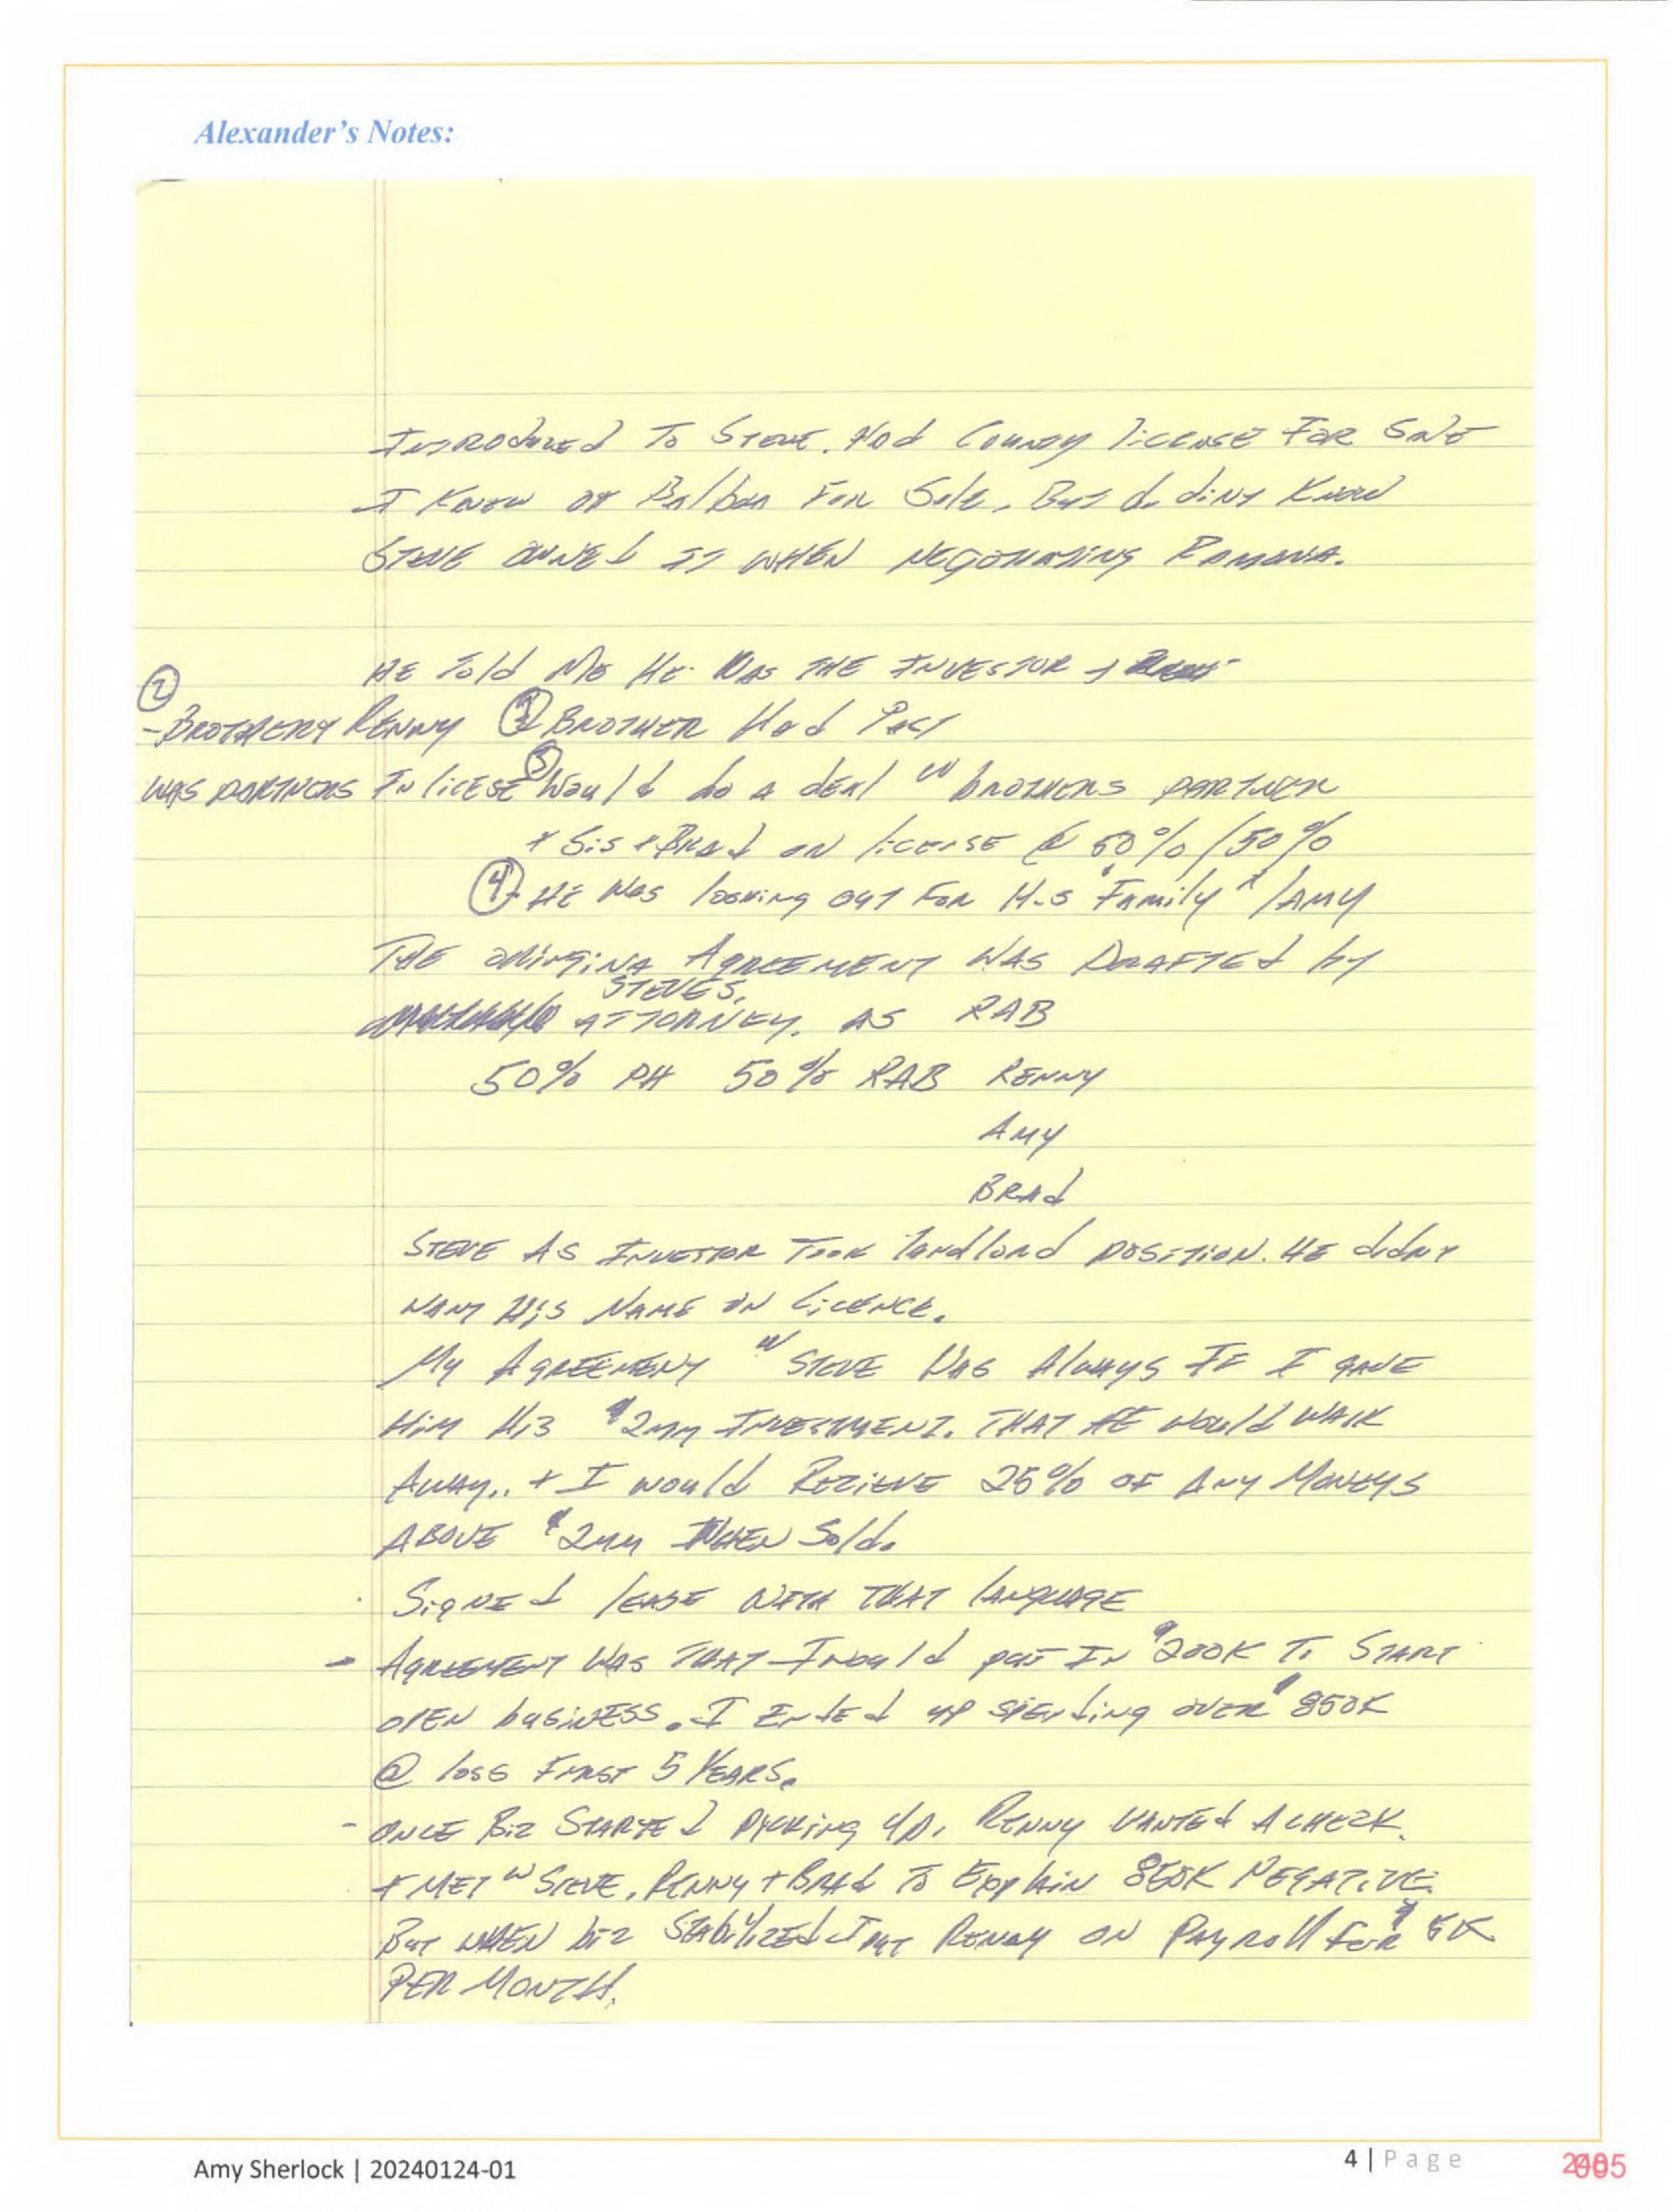 Alexander's Notes:
INTRODUCED TO STEVE. HAD COUNTY LICENSE FOR SALE
I KNEW OF Balboa FOR Sale, BUT didNT KNOW
STEVE OWNED IT WHEN NEGOTIATING RAMONA.
HE TOld ME HE WAS THE INVESTOR +
②
-BROTHER RENNY ③ BROTHER Had Past
WAS PARTNERS IN liCESE ⑤ Would do a dEAl W/ bROTHERS PARTNER
+ Sis + BRAd ON liCENSE @ 50% / 50%
④ - HE WAS looking OUT FOR HiS "Family" / AMY
THE AGREEMENT WAS DRAFTED by
STEVES,
ATTORNEY. AS RAB
50% PH 50% RAB RENNY
AMY
BRAd
STEVE AS INVESTOR TOOK landlord POSITION. HE didNT
WANT HIS NAME ON LICENCE.
MY AGREEMENT W/ STEVE WAS AlWAYS IF I GAVE
HIM HIS $2MM INVESTMENT. THAT HE WOUld WALK
AWAY.. + I WOUld RECIEVE 25% OF ANY MONEYS
ABOVE $2MM WHEN Sold.
SIGNEd lEASE WITH THAT lANGUAGE
- AGREEMENT WAS THAT I Would put IN $200K TO START
OPEN buSINESS. I ENdEd UP SPENdING OVER $850K
@ loss FIRST 5 YEARS.
- ONCE BIZ STARTEd PICKING UP, RENNY WANTEd A CHECK.
+ MET W/ STEVE, RENNY + BRAd TO EXPlAIN 850K NEGATIVE.
BUT WHEN biz STAbIlIZEd I PUT RENNY ON PAYROll FOR $5K
PER MONTH.
Amy Sherlock | 20240124-01
4 | Page